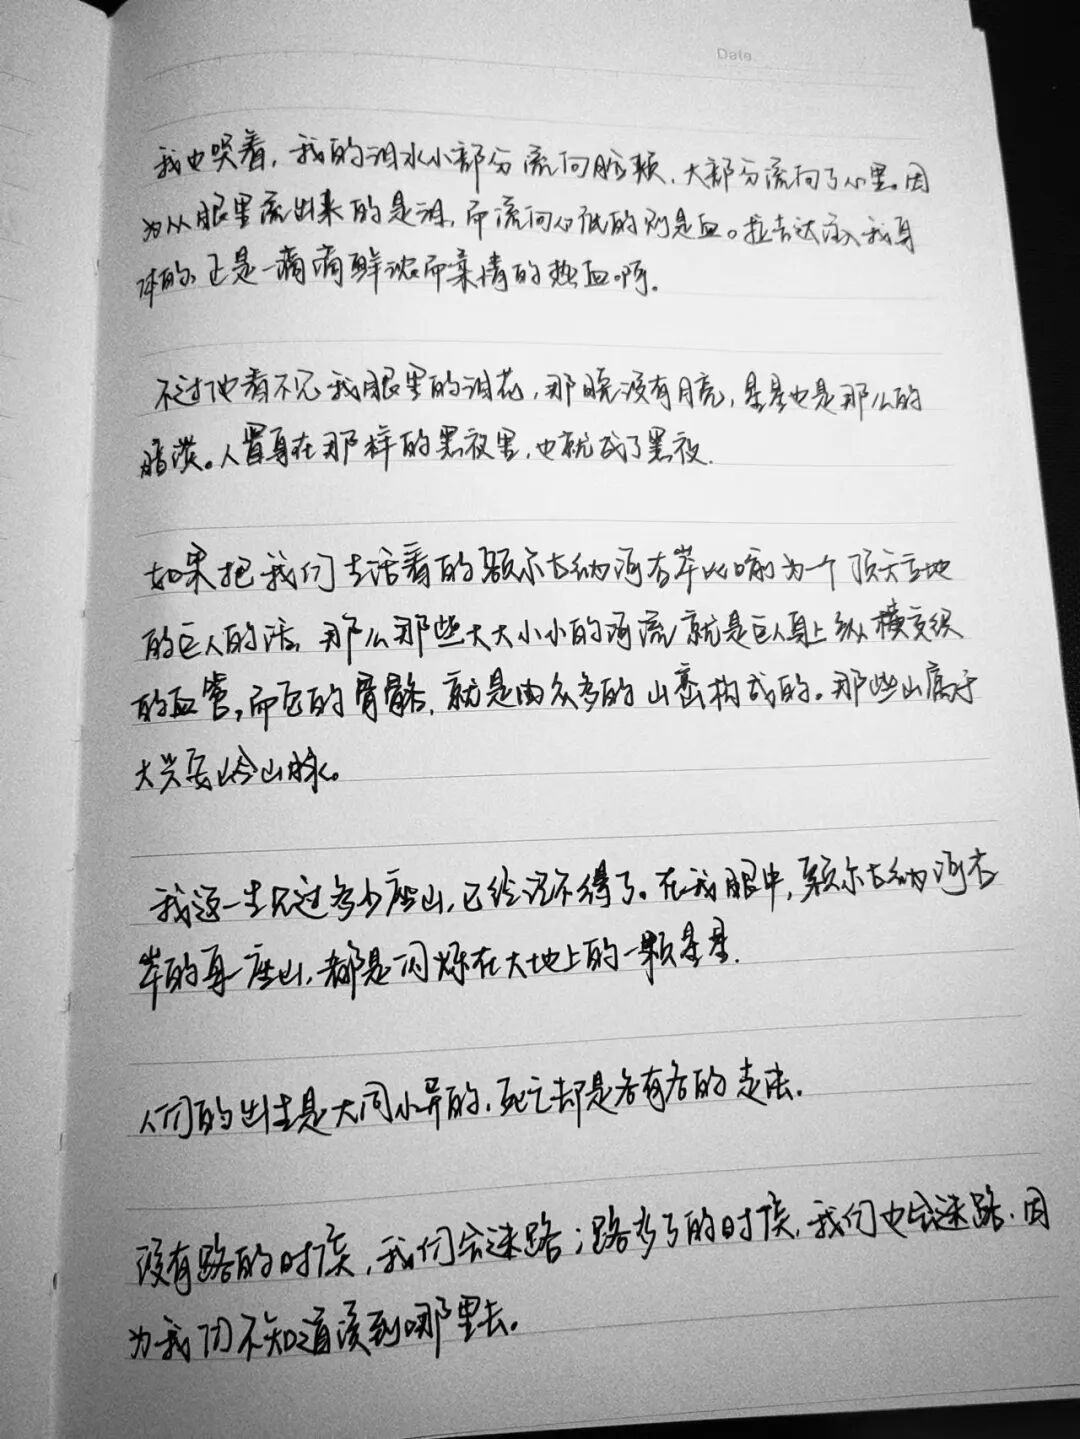 Date
我也哭着，我的泪水小部分流向脸颊，大部分流向了心里。因
为从眼里流出来的是泪，而流向心底的则是血。拉吉达注入我身
体的，正是一滴滴鲜浓而柔情的热血啊．
不过他看不见我眼里的泪花，那晚没有月亮，星星也是那么的
暗淡。人置身在那样的黑夜里，也就成了黑夜．
如果把我们生活着的额尔古纳河右岸比喻为一个顶天立地
的巨人的话，那么那些大大小小的河流就是巨人身上纵横交织
的血管，而它的骨骼，就是由众多的山峦构成的。那些山属于
大兴安岭山脉。
我这一生见过多少座山，已经记不得了。在我眼中，额尔古纳河右
岸的每一座山，都是闪烁在大地上的一颗星星．
人们的出生是大同小异的，死亡却是各有各的走法．
没有路的时候，我们会迷路；路多了的时候，我们也会迷路，因
为我们不知道该到哪里去。